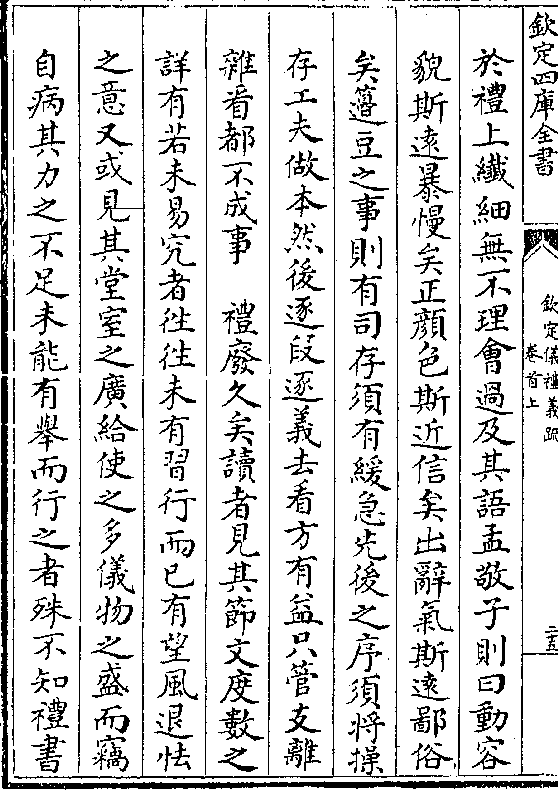 欽定四庫全書
欽定儀禮義疏
卷首上
二十五
於禮上纖細無不理會過及其語孟敬子則曰動容
貌斯遠暴慢矣正顔色斯近信矣出辭氣斯遠鄙俗
矣籩豆之事則有司存須有緩急先後之序須將操
存工夫做本然後逐段逐義去看方有益只管支離
雜看都不成事　禮廢久矣讀者見其節文度數之
詳有若未易究者徃徃未有習行而已有望風退怯
之意又或見其堂室之廣給使之多儀物之盛而竊
自病其力之不足未能有舉而行之者殊不知禮書